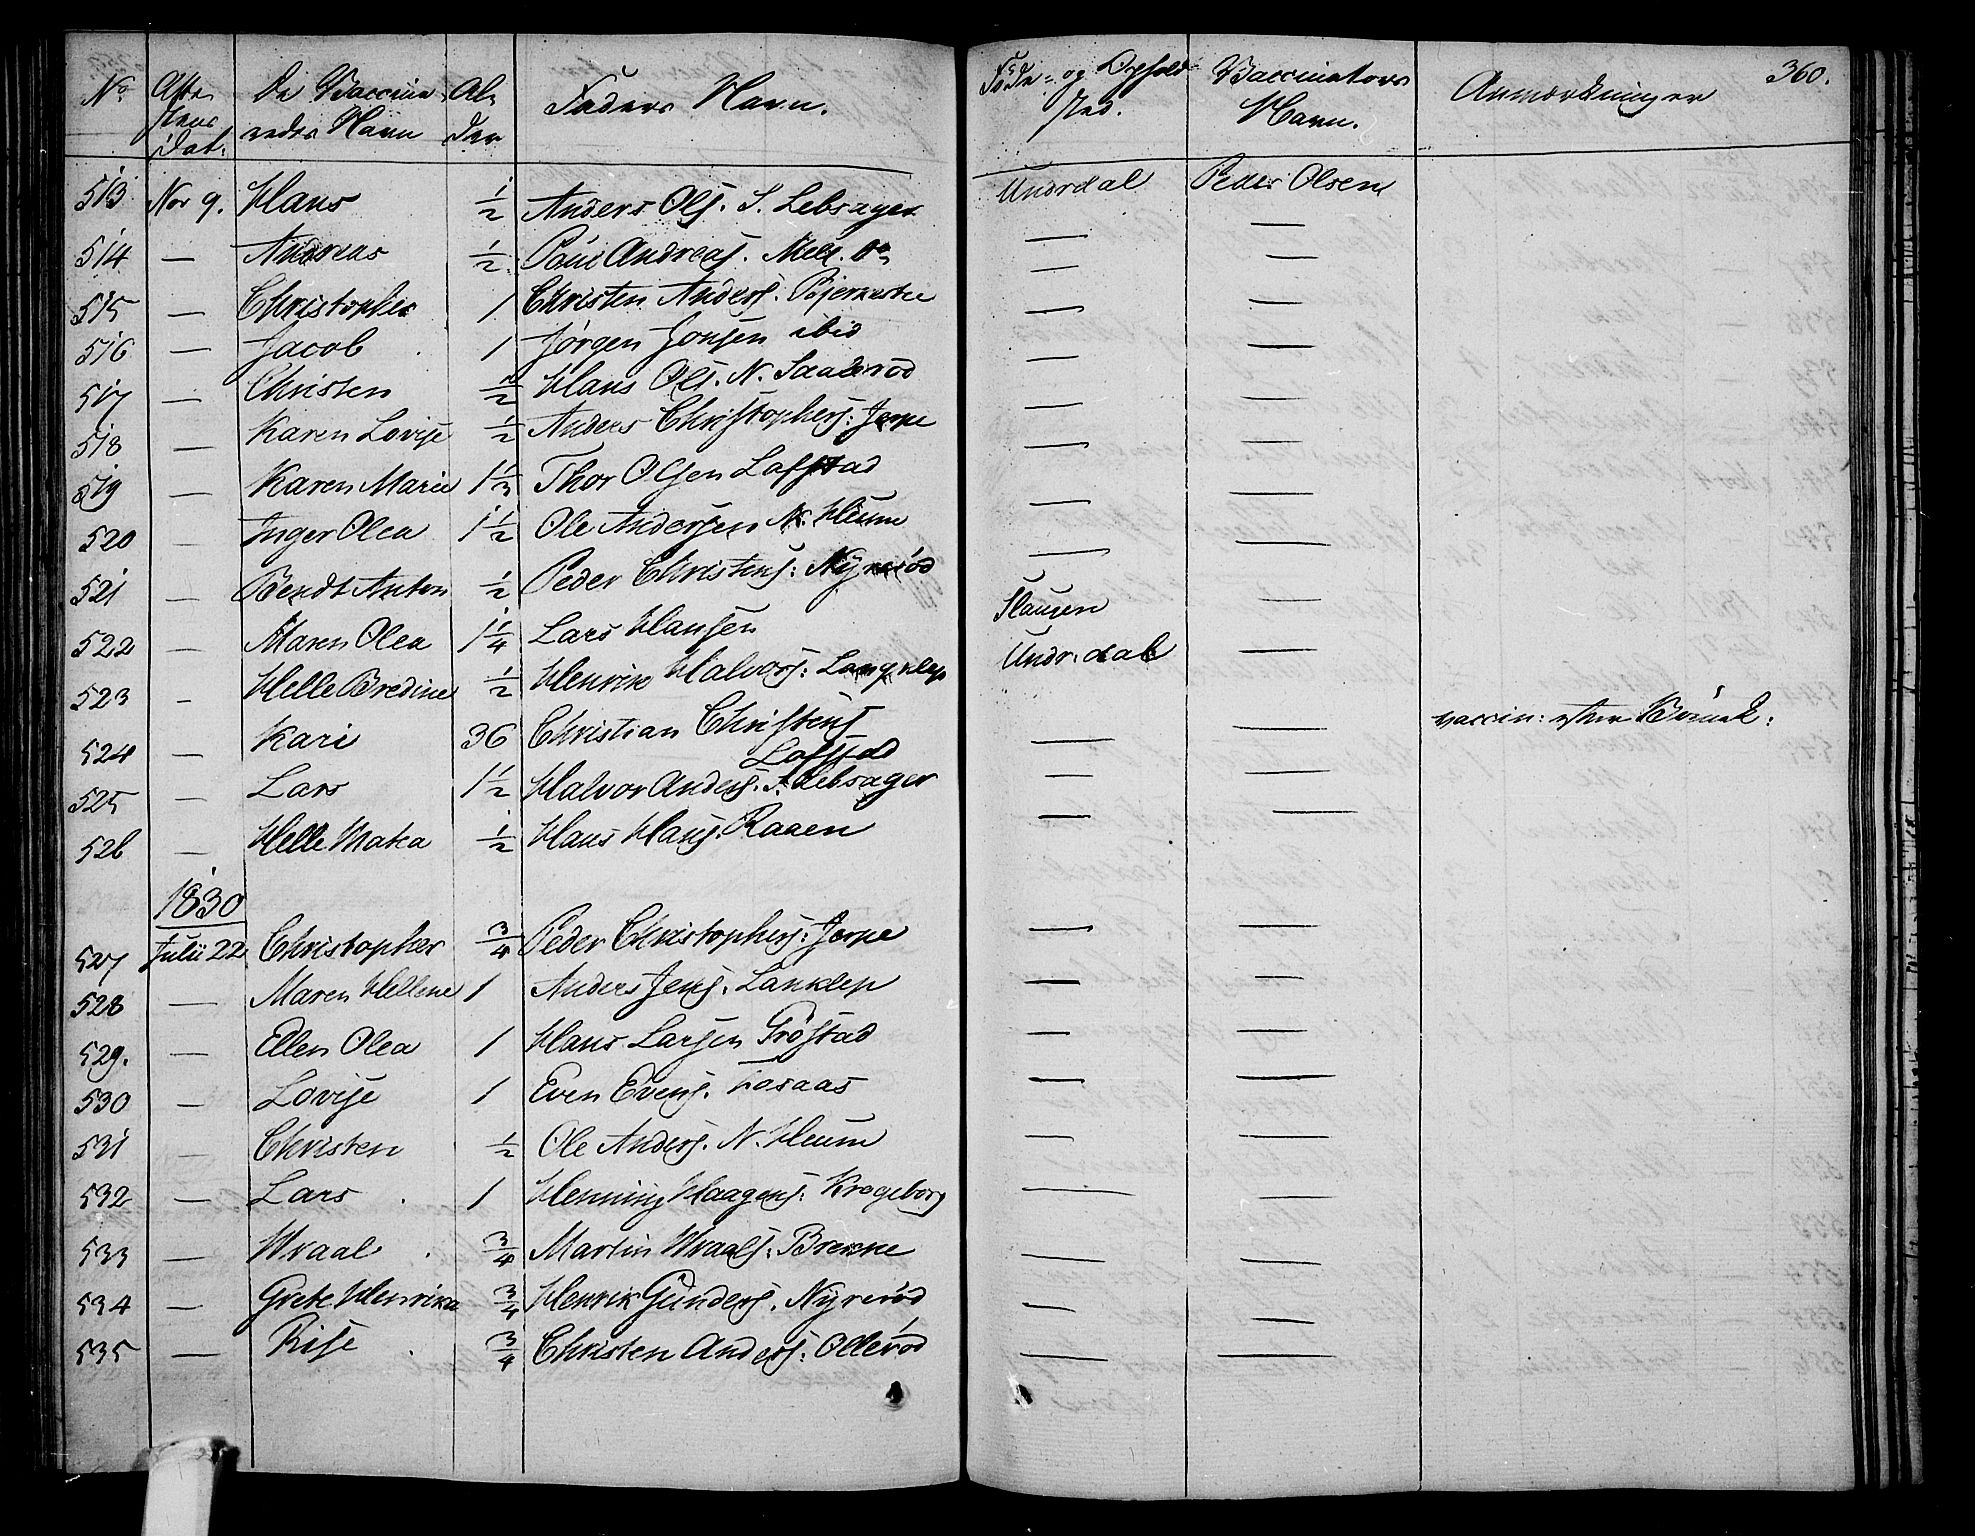 360.
No Atte stens Dat: De Vaccine redes Navn Al der Faders Navn. Føde- og Ophold Sted. Vaccinateurs Navn. Anmærkninger
513 Nov 9. Hans 1/2 Anders Ols. S. Lebsager Undrdal Peder Olsen
514 — Andreas 1/2 Poul Andreas. Mell. — —
515 — Christopher 1 Christen Anders: Bjerkestre — —
516 — Jacob 1 Jørgen Jonsen ibid — —
517 — Christen 1/2 Hans Ols. N. — —
518 — Karen Lovise 1/2 Anders Christophers: Jerpe — —
519 — Karen Marie 1 1/3 Thor Olsen Lofstad — —
520 — Inger Olea 1 1/2 Ole Andersen N. Heum — —
521 — Bendt Anton 1/2 Peder Christens: Nyrerød — —
522 — Maren Olea 1 1/4 Lars Hansen Slangen —
523 — Helle Bredine 1/2 Henrik Halvors: Langklep Undr:dal —
524 — Kari 36 Christian Christens Lofstad — — vaccin: efter
525 — Lars 1 1/2 Halvor Anders. S. Lebsager — —
526 — Helle Maria 1/2 Hans Hans: Raaen — —
1830
527 Julii 22 Christopher 3/4 Peder Christophers: Jerpe — —
528 — Maren Hellene 1 Anders Jens. Lanklep — —
529. — Ellen Olea 1 Hans Larsen Frøstad — —
530 — Lovise 1 Even Evens. Fosaas — —
531 — Christen 1/2 Ole Anders. N. Heum — —
532 — Lars 1 Henning Haagens: Krogeborg — —
533 — Wraal 3/4 Martin Wraals: Brekke — —
534 — Grete Henrikke 3/4 Henrik Gunders. Nyrerød — —
535 — Rise 3/4 Christen Anders: Ollerød — —